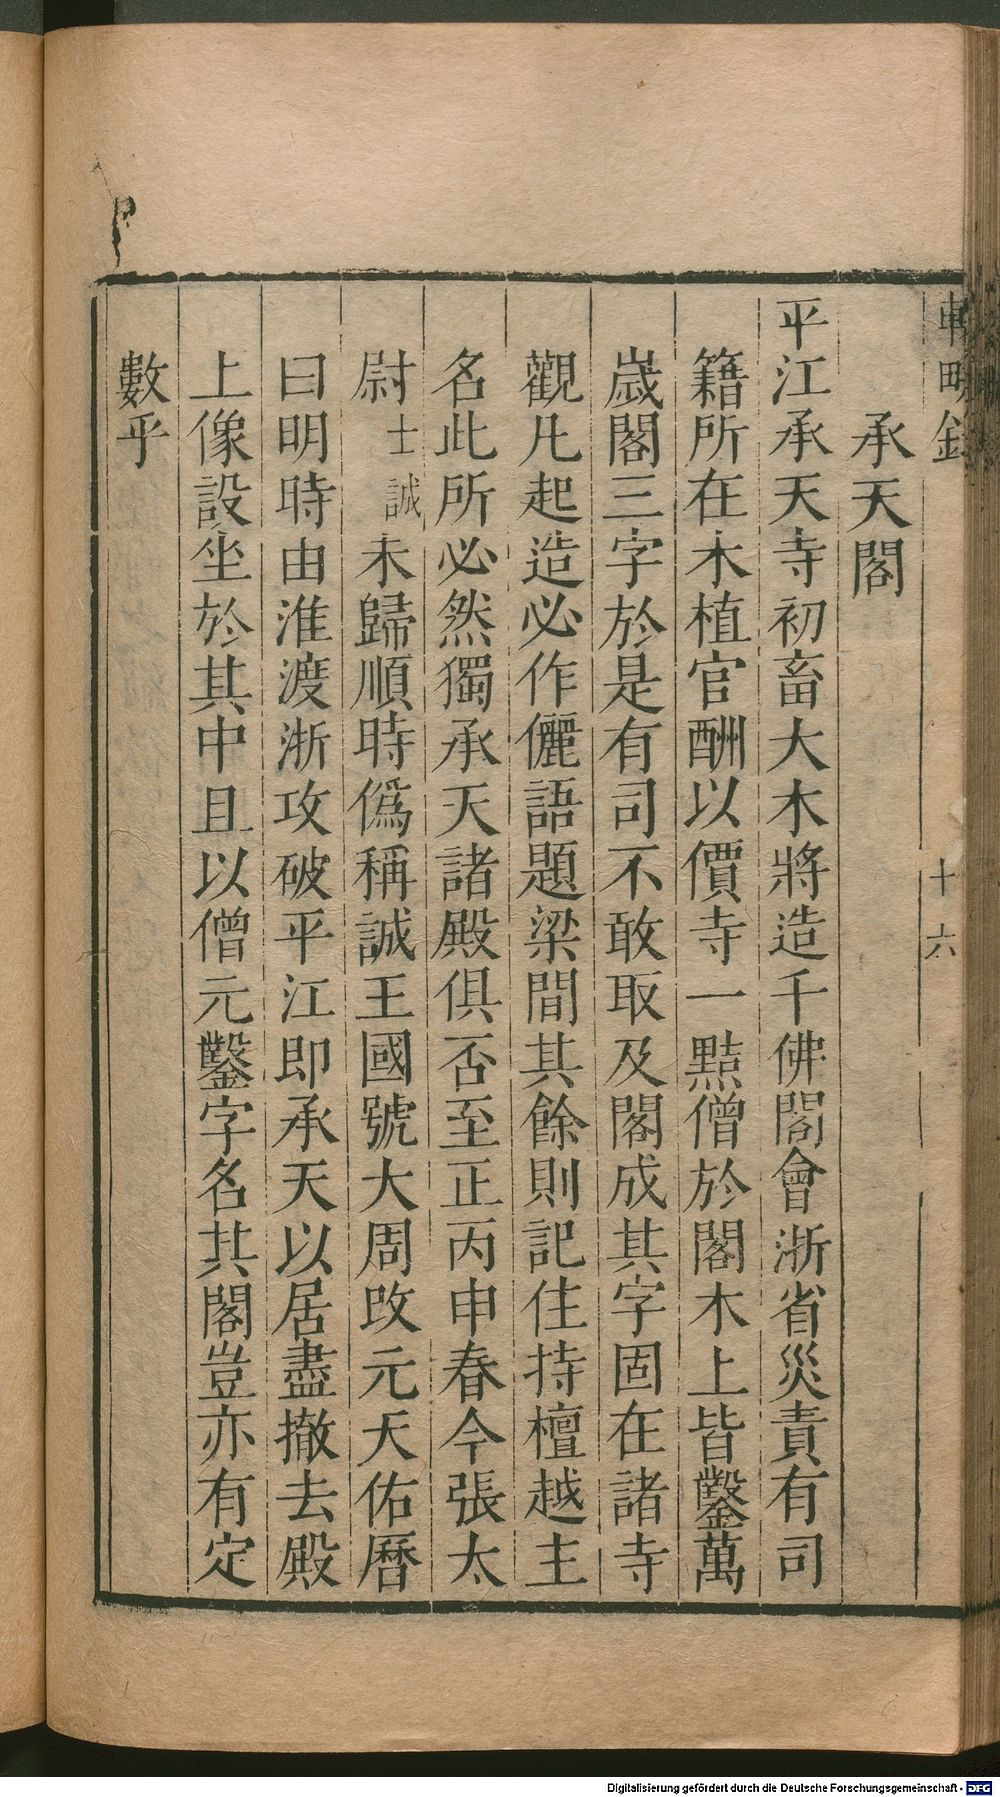 輟耕錄
十六
承天閣
平江承天寺初畜大木將造千佛閣會浙省災責有司
籍所在木植官酬以價寺一黠僧於閣木上皆鑿萬
歲閣三字於是有司不敢取及閣成其字固在諸寺
觀凡起造必作儷語題梁間其餘則記住持檀越主
名此所必然獨承天諸殿俱否至正丙申春今張太
尉士誠未歸順時僞稱誠王國號大周改元天佑曆
曰明時由淮渡浙攻破平江即承天以居盡撤去殿
上像設坐於其中且以僧元鑿字名其閣豈亦有定
數乎
Digitalisierung gefördert durch die Deutsche Forschungsgemeinschaft - DFG